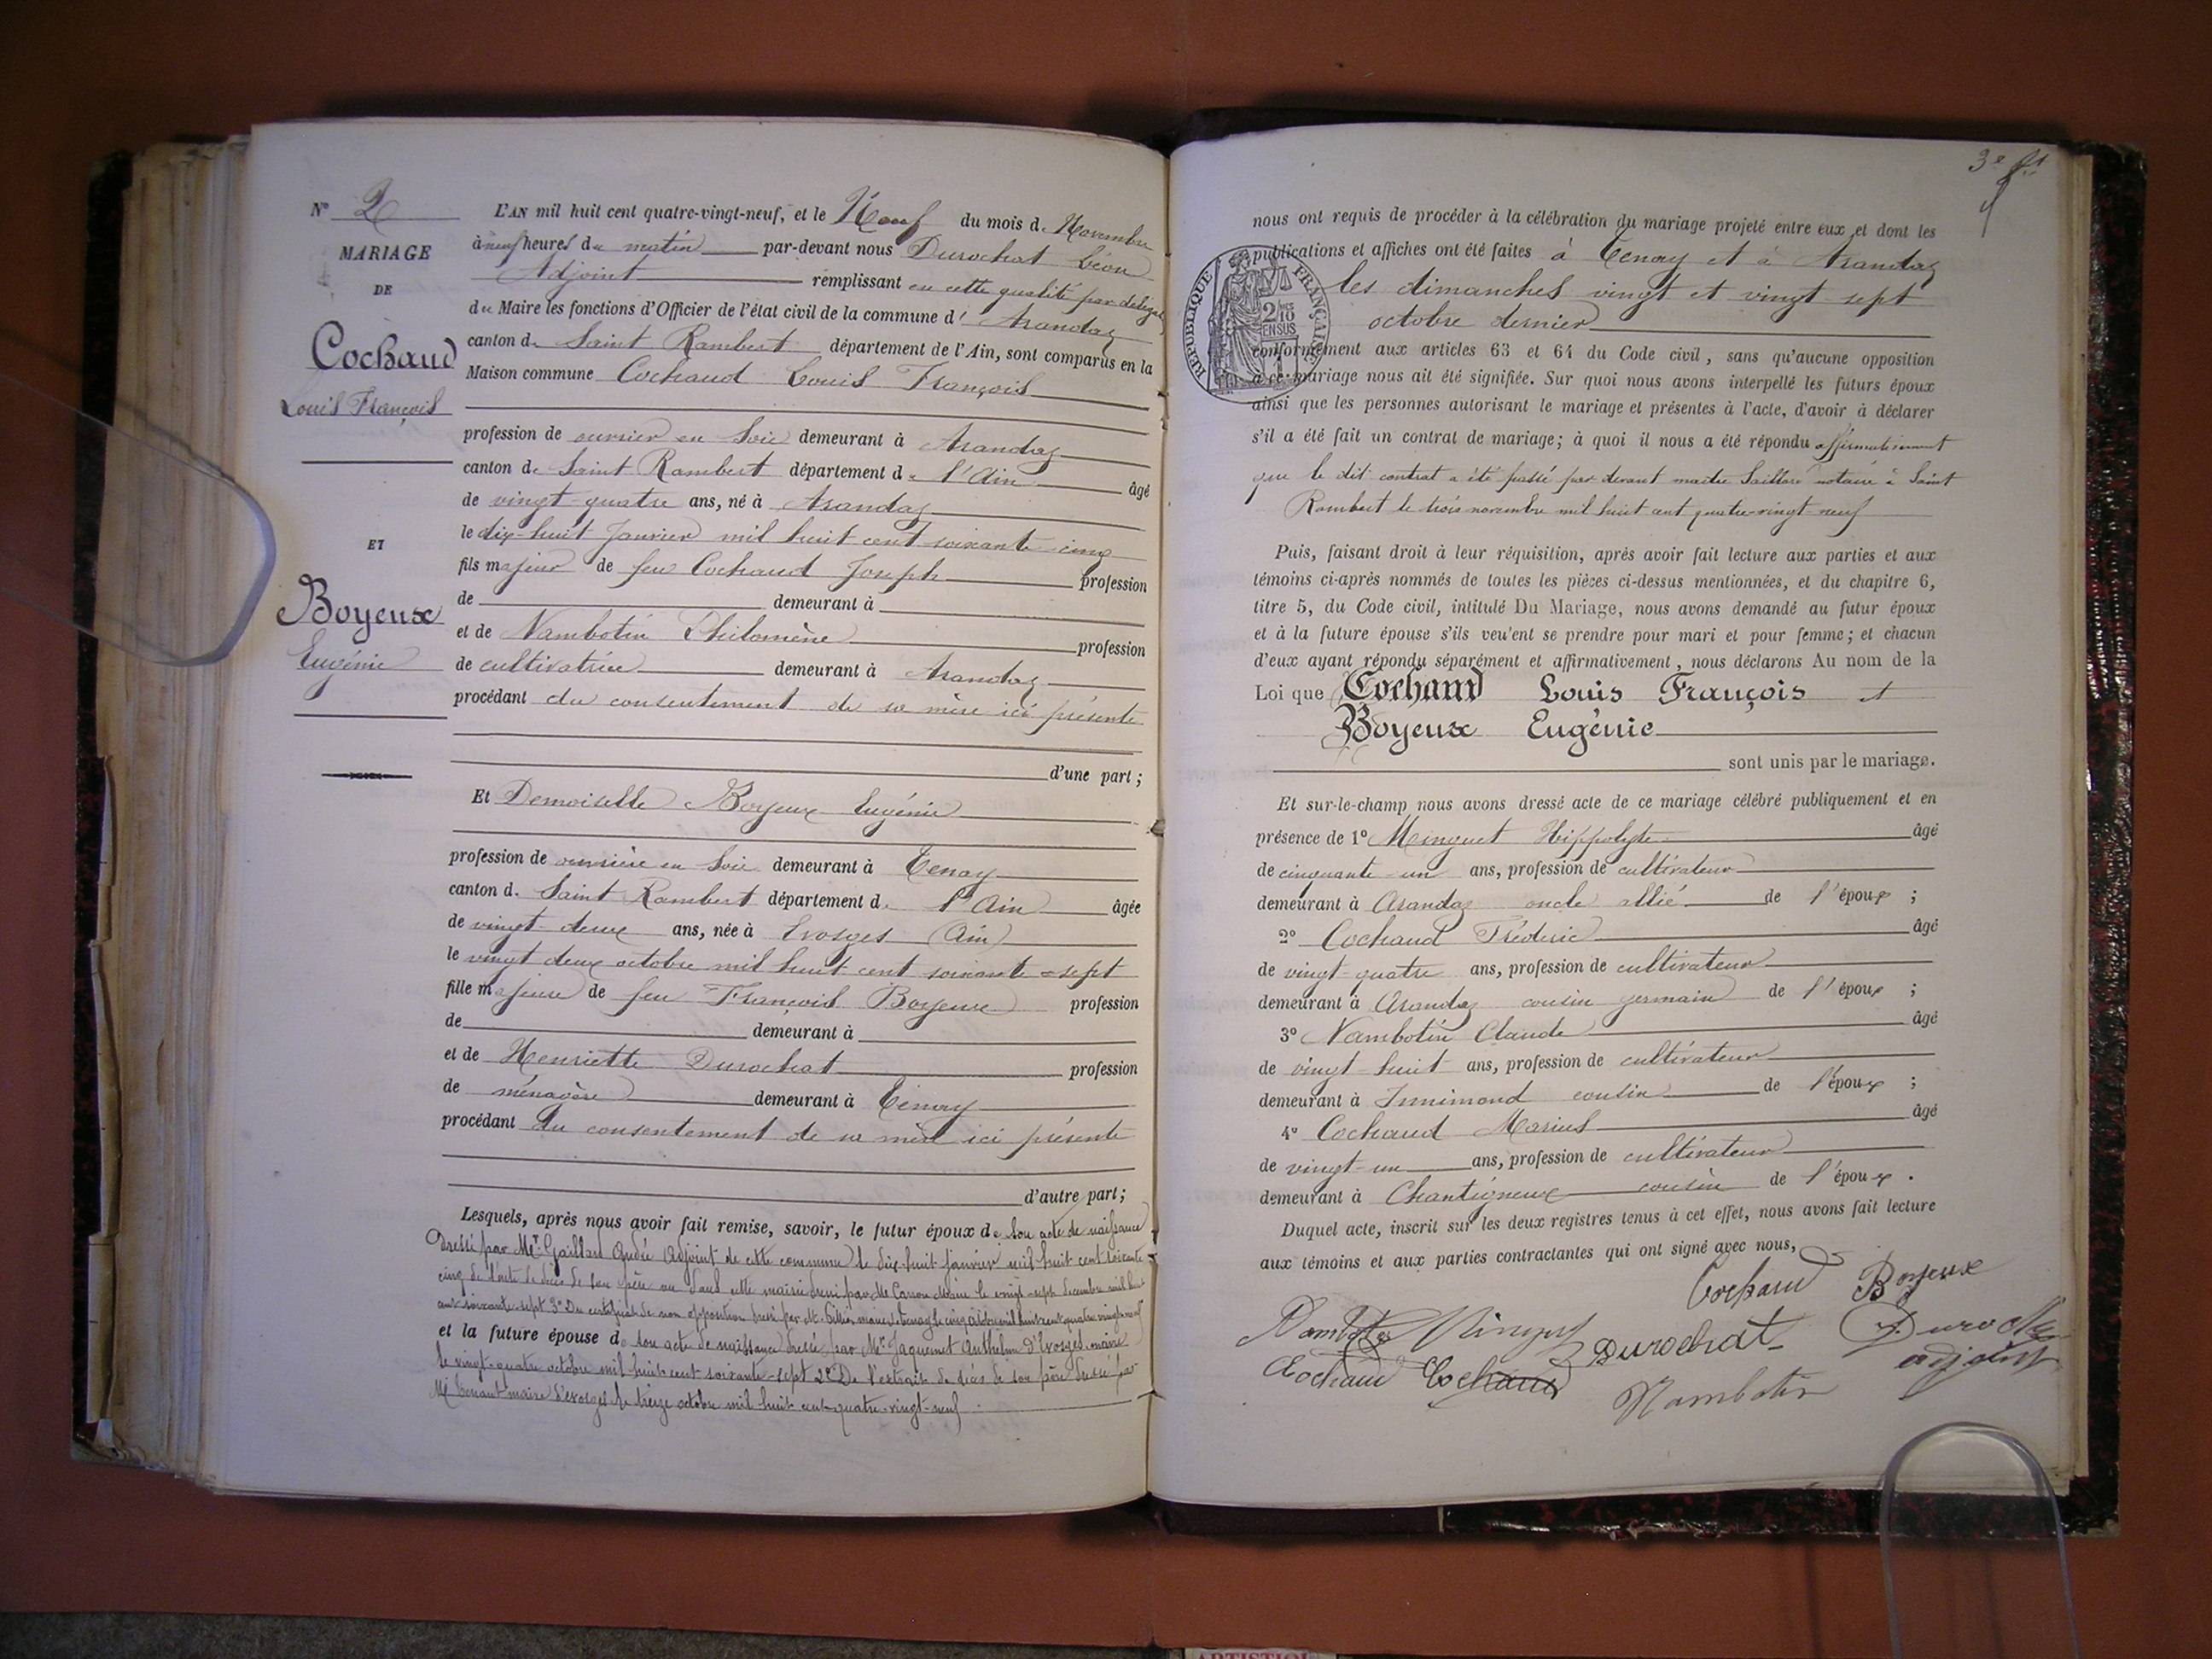 N° 2
MARIAGE
DE
Cochaud
Louis François
ET
Boyeux
Eugénie
L'AN mil huit cent quatre-vingt-neuf, et le Neuf du mois de Novembre
à neuf heures du matin par-devant nous Durochat Léon
Adjoint remplissant en cette qualité par délégat
du Maire les fonctions d'Officier de l'état civil de la commune d' Arandaz
canton de Saint Rambert département de l'Ain, sont comparus en la
Maison commune Cochaud Louis François
profession de ouvrier en soie demeurant à Arandaz
canton de Saint Rambert département de l'Ain âgé
de vingt-quatre ans, né à Arandaz
le dix-huit Janvier mil huit cent soixante-cinq
fils majeur de feu Cochaud Joseph profession
de demeurant à
et de Nambotin Philomène profession
de cultivatrice demeurant à Arandaz
procédant du consentement de sa mère ici présente
d'une part ;
Et Demoiselle Boyeux Eugénie
profession de ouvrière en soie demeurant à Tenay
canton de Saint Rambert département de l'Ain âgée
de vingt-deux ans, née à Evosges (Ain)
le vingt deux octobre mil huit cent soixante-sept
fille majeure de feu François Boyeux profession
de demeurant à
et de Henriette Durochat profession
de ménagère demeurant à Tenay
procédant du consentement de sa mère ici présente
d'autre part ;
Lesquels, après nous avoir fait remise, savoir, le futur époux de son acte de naissance
Dressé par Mr Gaillard André Adjoint de cette commune le dix-huit janvier mil huit cent soixante
cinq de l'acte de décès de son père dans cette mairie par Mr maire le vingt-sept décembre mil huit
cent soixante-sept 3° Du certificat de non opposition dressé par Mr maire de Tenay le cinq mil huit cent quatre vingt neuf
et la future épouse de son acte de naissance dressé par Mr Jaquemet Anthelme d'Evosges maire
le vingt-quatre octobre mil huit cent soixante-sept 2° De l'extrait de décès de son père dressé par
Mr Tenant maire d'Evosges le treize octobre mil huit cent quatre-vingt-neuf
3e
nous ont requis de procéder à la célébration du mariage projeté entre eux et dont les
publications et affiches ont été faites à Tenay et à Arandaz
les dimanches vingt et vingt-sept
octobre dernier
RÉPUBLIQUE FRANÇAISE
2/10 EN SUS
conformément aux articles 63 et 64 du Code civil, sans qu'aucune opposition
à ce mariage nous ait été signifiée. Sur quoi nous avons interpellé les futurs époux
ainsi que les personnes autorisant le mariage et présentes à l'acte, d'avoir à déclarer
s'il a été fait un contrat de mariage; à quoi il nous a été répondu affirmativement
que le dit contrat a été passé par devant maître notaire à Saint
Rambert le trois novembre mil huit cent quatre-vingt neuf
Puis, faisant droit à leur réquisition, après avoir fait lecture aux parties et aux
témoins ci-après nommés de toutes les pièces ci-dessus mentionnées, et du chapitre 6,
titre 5, du Code civil, intitulé Du Mariage, nous avons demandé au futur époux
et à la future épouse s'ils veu'ent se prendre pour mari et pour femme; et chacun
d'eux ayant répondu séparément et affirmativement, nous déclarons Au nom de la
Loi que Cochaud Louis François et
Boyeux Eugénie
sont unis par le mariage.
Et sur-le-champ nous avons dressé acte de ce mariage célébré publiquement et en
présence de 1° Minguet Hippolyte âgé
de cinquante-un ans, profession de cultivateur
demeurant à Arandaz oncle allié de l'époux ;
2° Cochaud Fréderic âgé
de vingt-quatre ans, profession de cultivateur
demeurant à Arandaz cousin germain de l'époux ;
3° Nambotin Claude âgé
de vingt-huit ans, profession de cultivateur
demeurant à Innimond cousin de l'époux ;
4° Cochaud Marius âgé
de vingt-un ans, profession de cultivateur
demeurant à Chantigneux cousin de l'époux.
Duquel acte, inscrit sur les deux registres tenus à cet effet, nous avons fait lecture
aux témoins et aux parties contractantes qui ont signé avec nous,
Cochaud Boyeux
Nambotin Minguet Durochat Durochat
Cochaud Cochaud adjoint
Nambotin